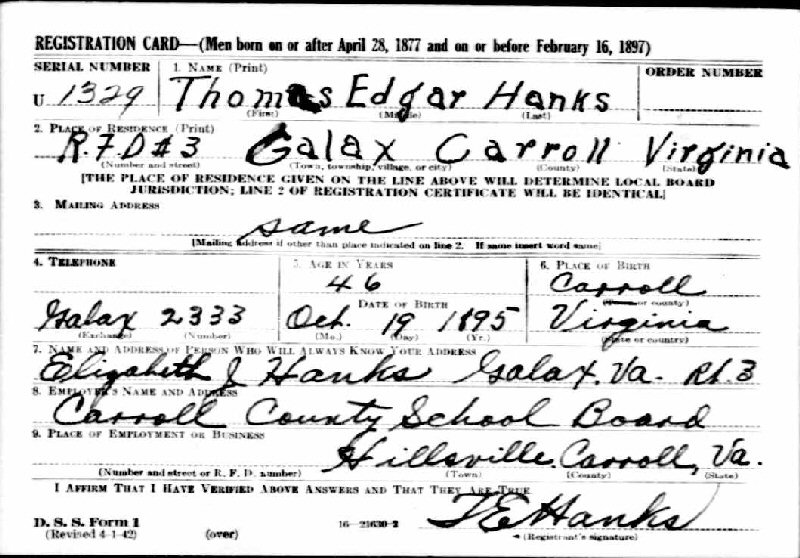 REGISTRATION CARD—(Men born on or after April 28, 1877 and on or before February 16, 1897)
SERIAL NUMBER 1. NAME (Print) ORDER NUMBER
U 1329 Thomas Edgar Hanks
(First) (Middle) (Last)
2. PLACE OF RESIDENCE (Print)
R.F.D # 3 Galax Carroll Virginia
(Number and street) (Town, township, village, or city) (County) (State)
[THE PLACE OF RESIDENCE GIVEN ON THE LINE ABOVE WILL DETERMINE LOCAL BOARD
JURISDICTION; LINE 2 OF REGISTRATION CERTIFICATE WILL BE IDENTICAL]
3. MAILING ADDRESS
same
[Mailing address if other than place indicated on line 2. If same insert word same]
4. TELEPHONE 5. AGE IN YEARS 6. PLACE OF BIRTH
46 Carroll
DATE OF BIRTH (Town or county)
Galax 2333 Oct. 19 1895 Virginia
(Exchange) (Number) (Mo.) (Day) (Yr.) (State or country)
7. NAME AND ADDRESS OF PERSON WHO WILL ALWAYS KNOW YOUR ADDRESS
Elizabeth J Hanks Galax, Va. Rt. 3
8. EMPLOYER'S NAME AND ADDRESS
Carroll County School Board
9. PLACE OF EMPLOYMENT OR BUSINESS
Hillsville, Carroll, Va.
(Number and street or R. F. D. number) (Town) (County) (State)
I AFFIRM THAT I HAVE VERIFIED ABOVE ANSWERS AND THAT THEY ARE TRUE
T E Hanks
D. S. S. Form 1 16—21630-2
(Revised 4-1-42) (over) (Registrant's signature)